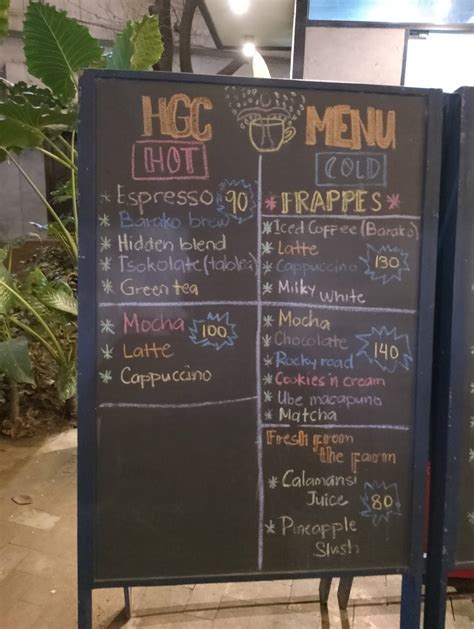 HGC MENU
HOT
* Espresso 90
* Barako brew
* Hidden blend
* Tsokolate (tablea)
* Green tea
* Mocha 100
* Latte
* Cappuccino
COLD
* FRAPPES *
* Iced Coffee (Barako)
* Latte
* Cappuccino 130
* Milky White
* Mocha
* Chocolate 140
* Rocky road
* Cookies n cream
* Ube macapuno
* Matcha
Fresh from
the farm
* Calamansi
Juice 80
* Pineapple
Slush